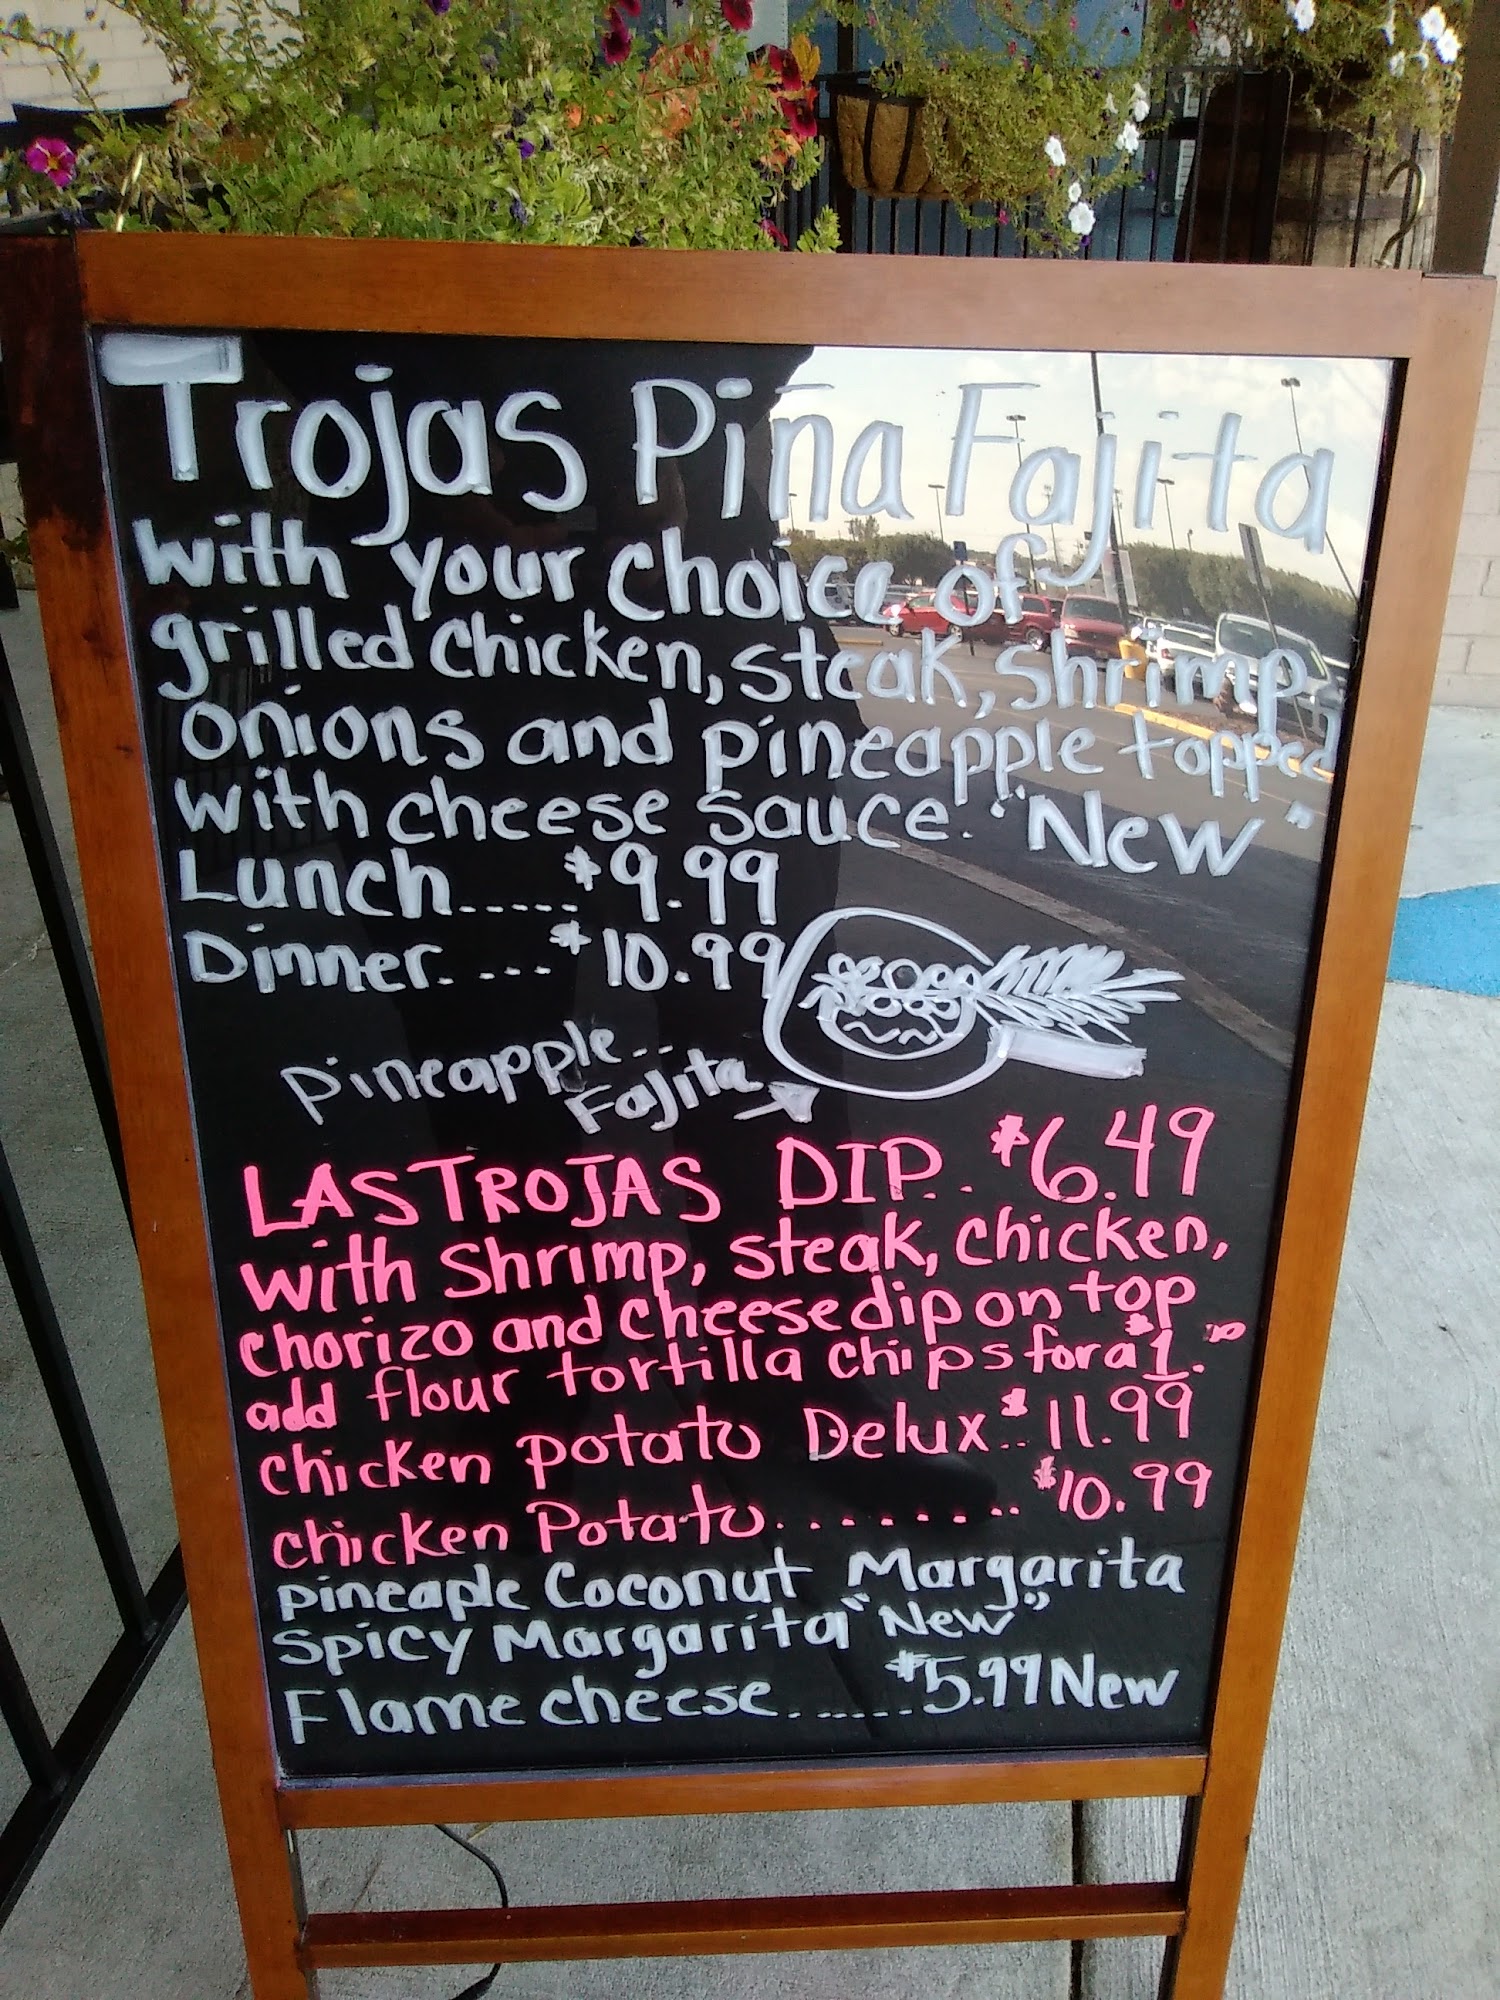 Trojas Piña Fajita
with your choice of
grilled chicken, steak, shrimp,
onions and pineapple topped
with cheese sauce. "New"
Lunch..... $9.99
Dinner..... $10.99
pineapple..
Fajita
LAS TROJAS DIP.. $6.49
with shrimp, steak, chicken,
chorizo and cheese dip on top
add flour tortilla chips for a $1.
chicken potato Delux.. $11.99
chicken Potato........ $10.99
pineaple Coconut Margarita
Spicy Margarita "New"
Flame cheese....... $5.99 New